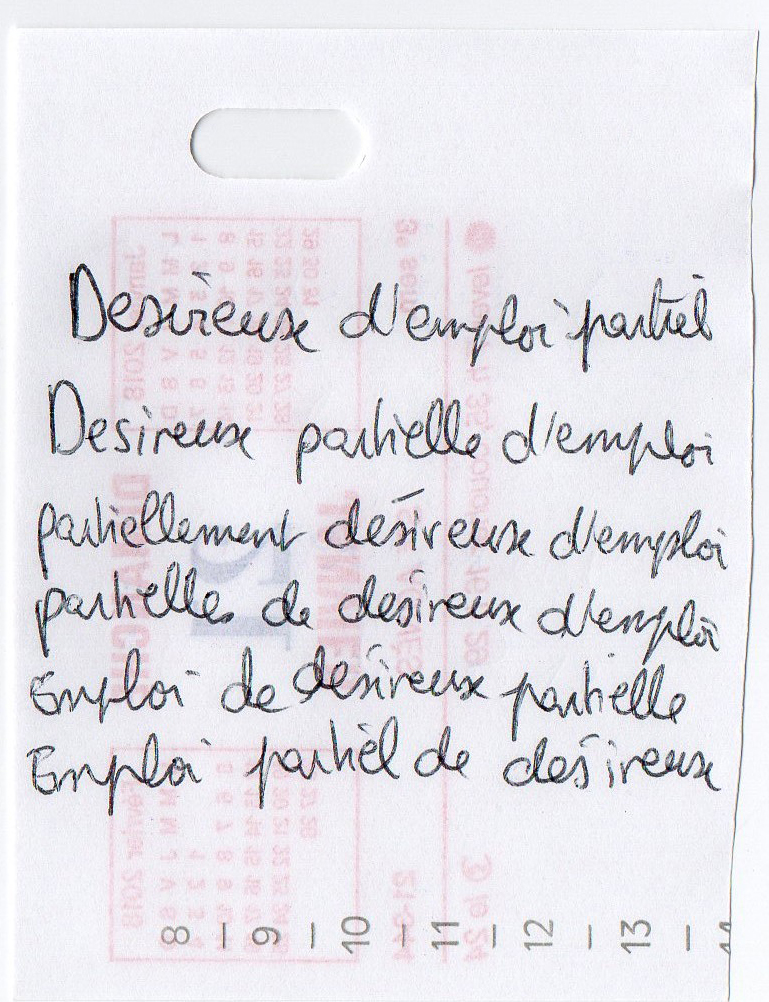 Desireuse d'emploi partiel
Desireuse partielle d'emploi
partiellement désireuse d'emploi
partielles de desireux d'emploi
Emploi de désireux partielle
Emploi partiel de désireuse
8 – 9 – 10 – 11 – 12 – 13 –